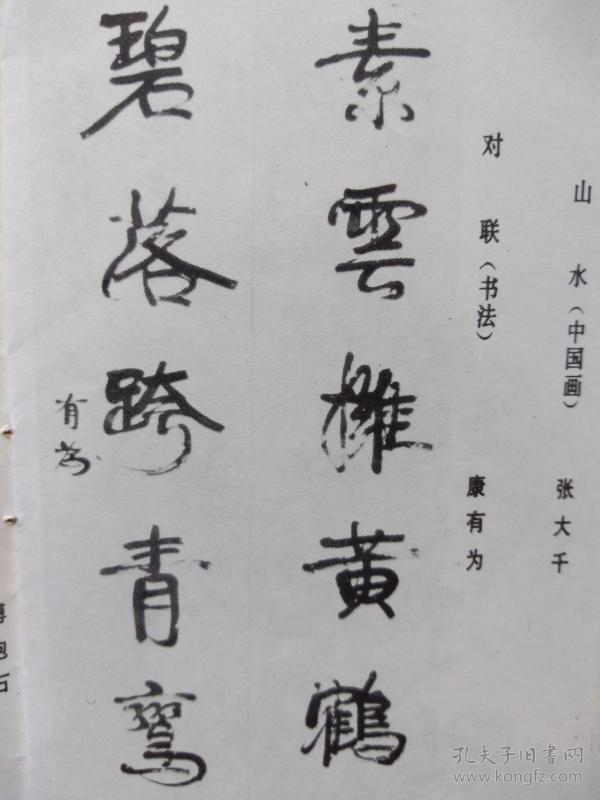 山水（中国画）　张大千
对联（书法）　康有为
素雲擁黄鶴
碧落跨青鸞
有為
傅抱石
孔夫子旧書网
www.kongfz.com